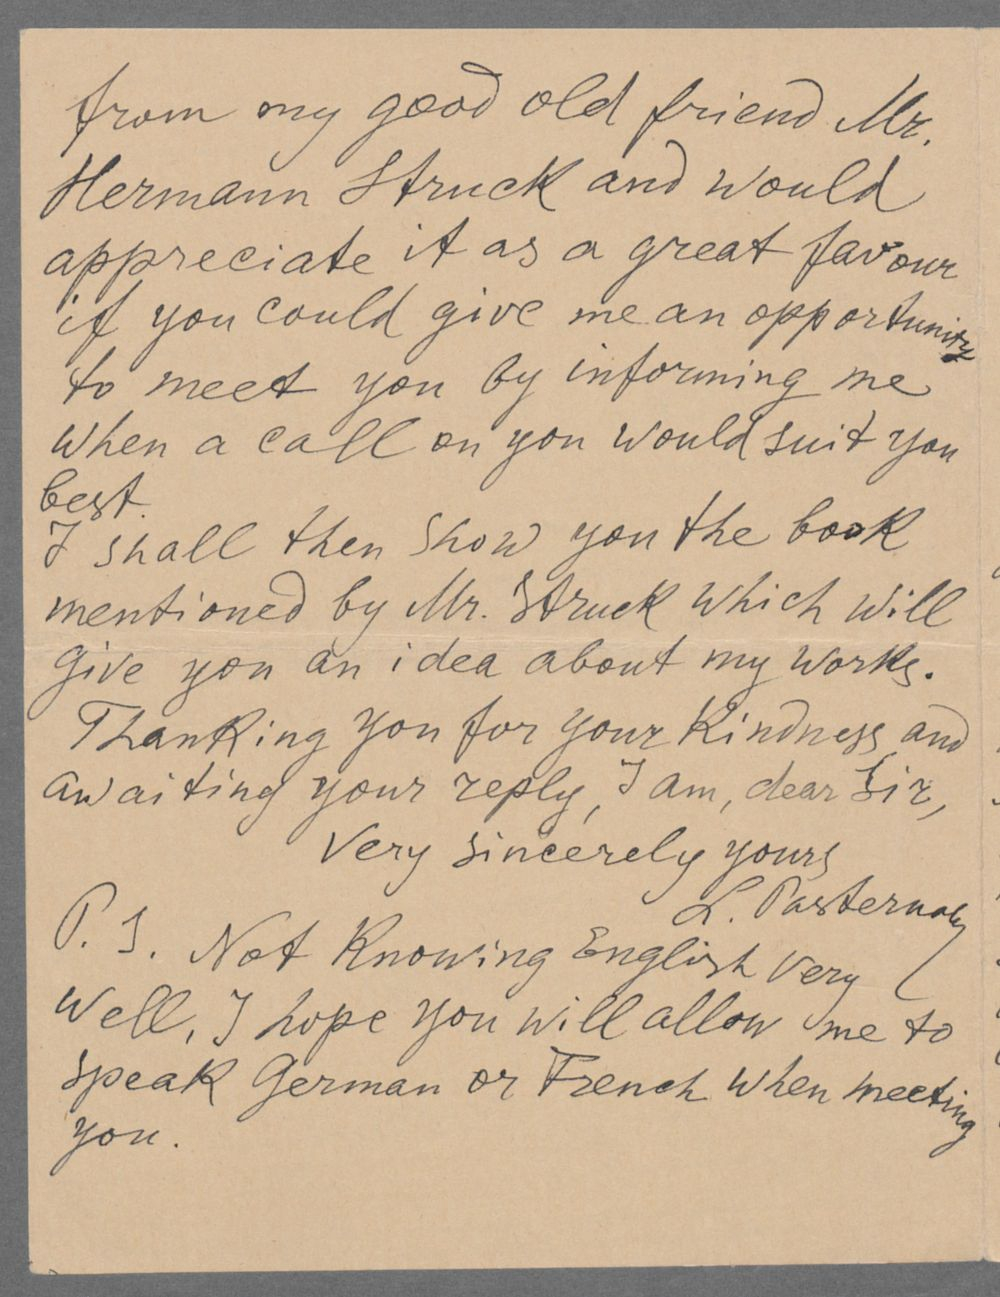 from my good old friend Mr.
Hermann Struck and would
appreciate it as a great favour
if you could give me an opportunity
to meet you by informing me
when a call on you would suit you
best.
I shall then show you the book
mentioned by Mr. Struck which will
give you an idea about my works.
Thanking you for your kindness and
awaiting your reply, I am, dear Sir,
Very sincerely yours
L. Pasternak
P. S. Not knowing English very
well, I hope you will allow me to
speak German or French when meeting
you.